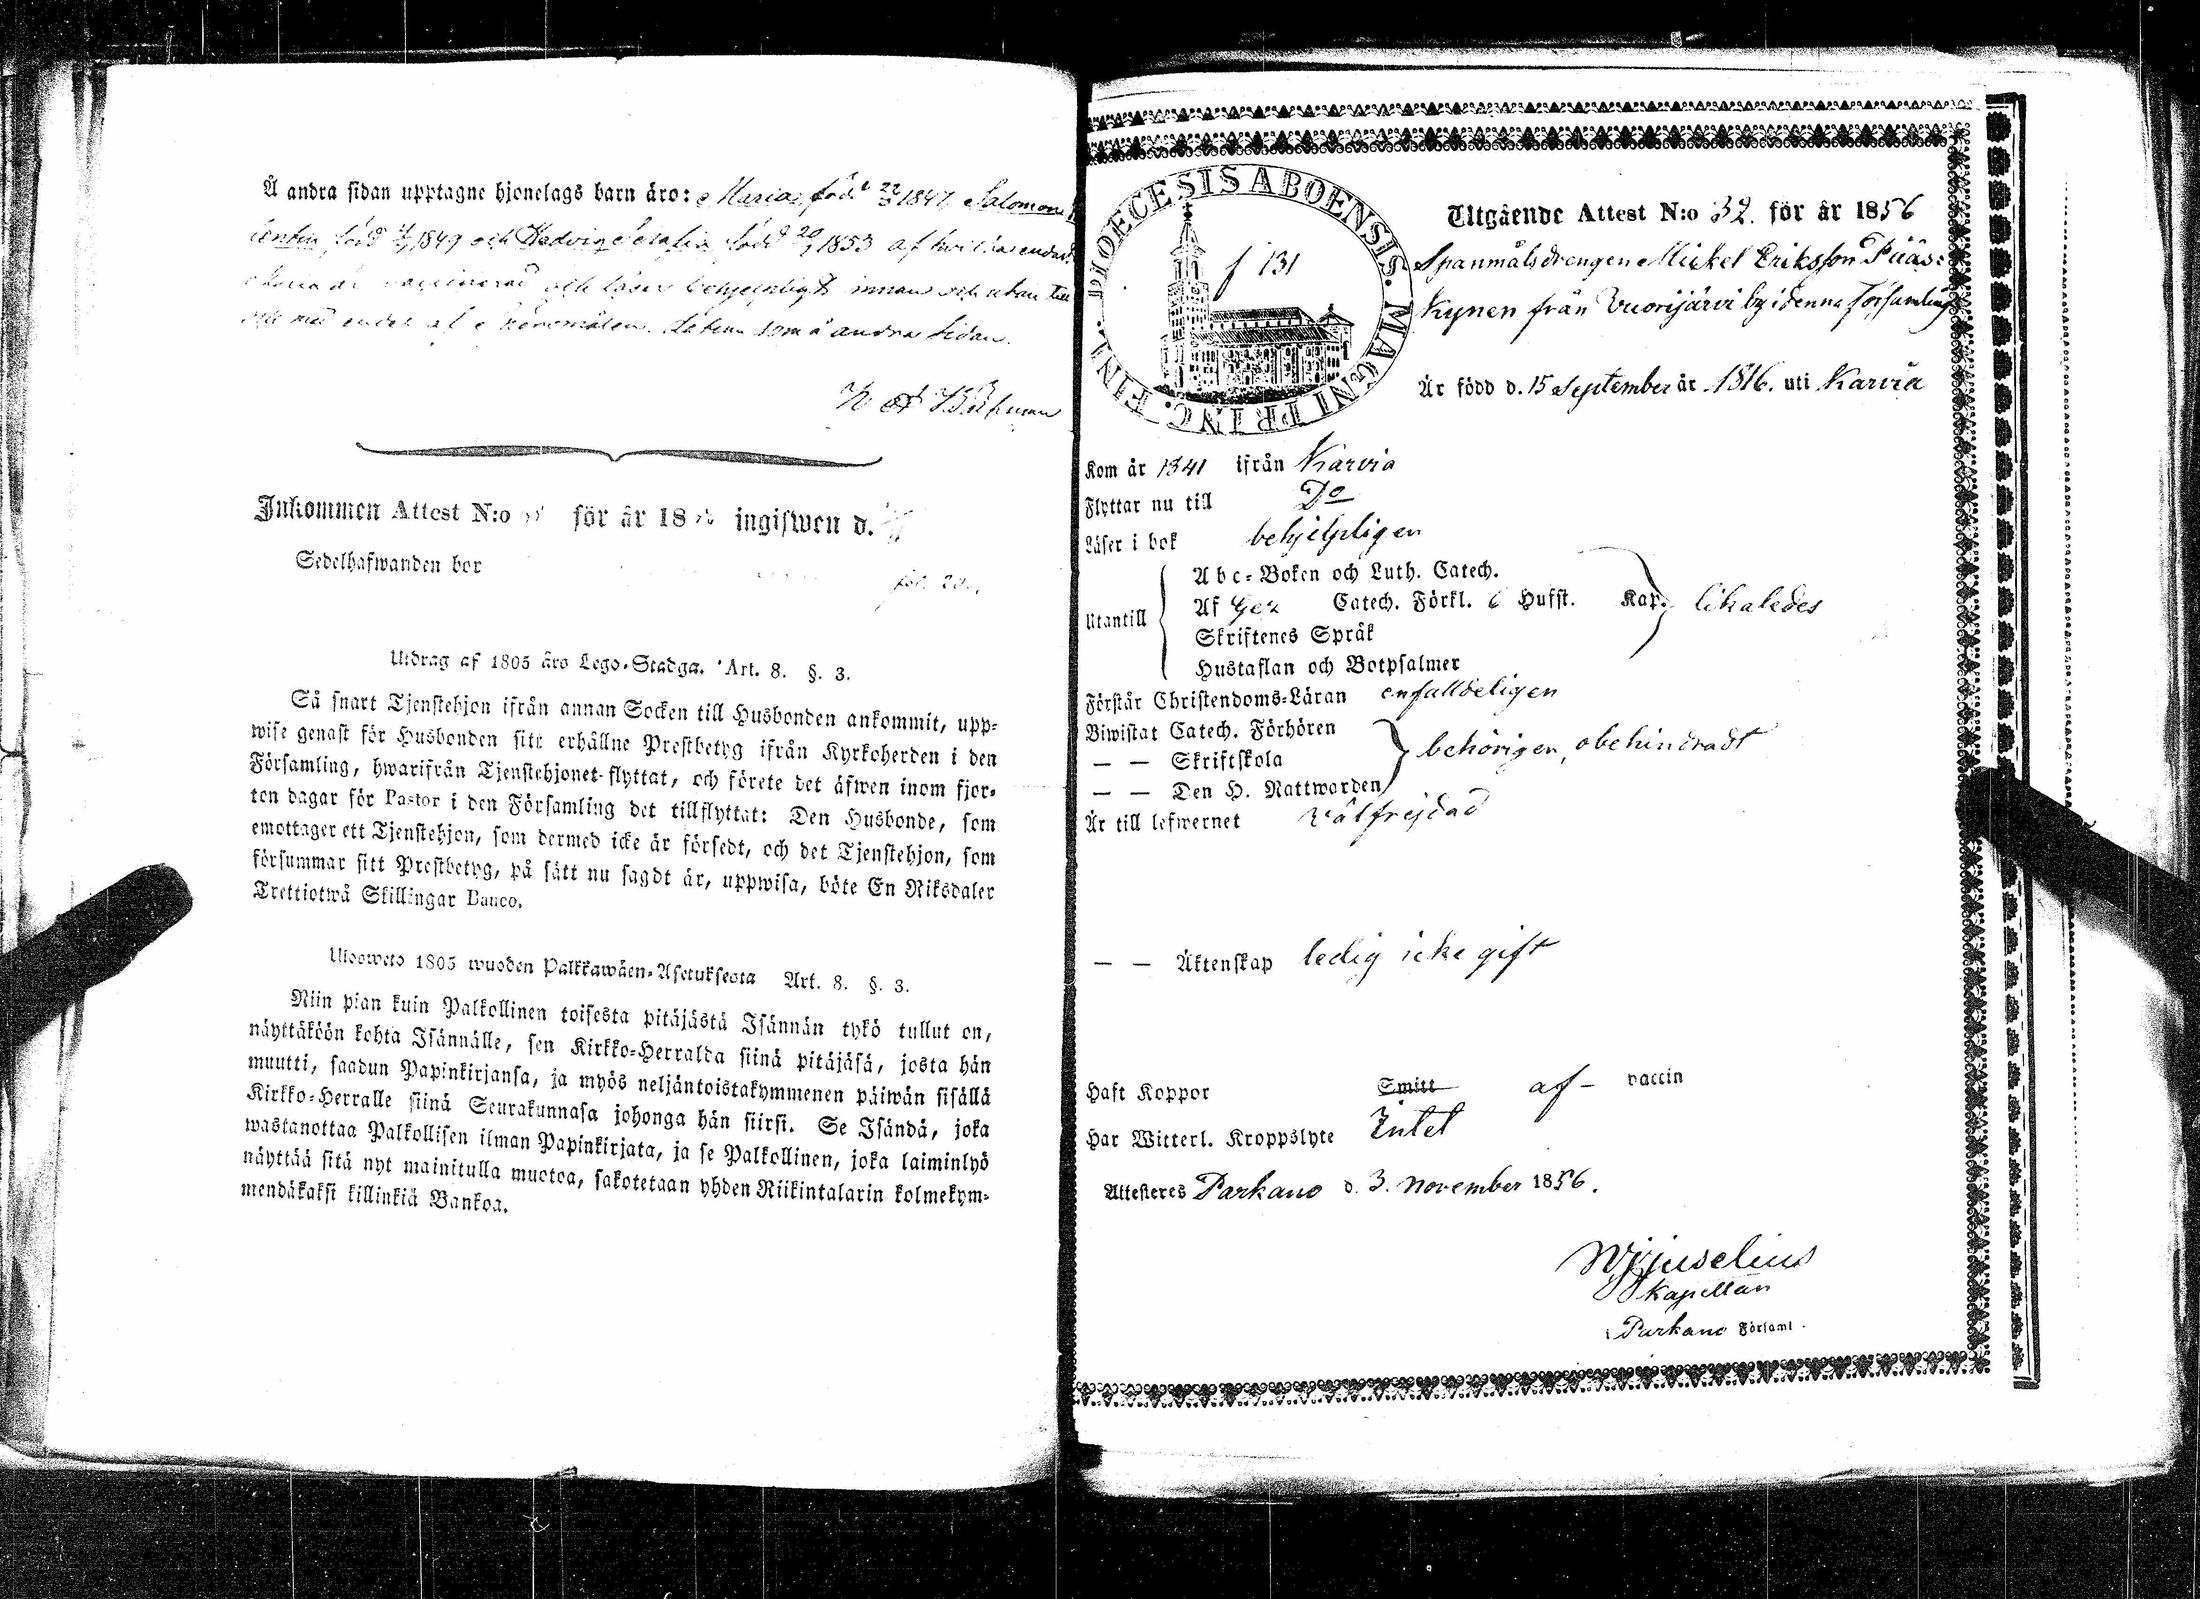 Å andra sidan upptagne hjonelags barn äro: Maria född 22/3 1847 Salomon
född 1849 och Hedvig Serafia född 1853 af
vaccinerad och läser behjelpligt innan och utan till
som å andra sidan.
Inkommen Attest N:o för år 18 ingifwen d.
Sedelhafwanden bor
fol. 20.
Utdrag af 1805 års Lego-Stadga. Art. 8. §. 3.
Så snart Tjenstehjon ifrån annan Socken till Husbonden ankommit, upp-
wise genast för Husbonden sitt erhållne Prestbetyg ifrån Kyrkoherden i den
Församling, hwarifrån Tjenstehjonet flyttat, och förete det äfwen inom fjor-
ton dagar för Pastor i den Församling det tillflyttat: Den Husbonde, som
emottager ett Tjenstehjon, som dermed icke är försedt, och det Tjenstehjon, som
försummar sitt Prestbetyg, på sätt nu sagdt är, uppwisa, böte En Riksdaler
Trettiotwå Skillingar Banco.
Ulosweto 1805 wuoden Palkkawäen-Asetuksesta Art. 8. §. 3.
Niin pian kuin Palkollinen toisesta pitäjästä Isännän tykö tullut on,
näyttäköön kohta Isännälle, sen Kirkko-Herralda siinä pitäjäsä, josta hän
muutti, saadun Papinkirjansa, ja myös neljäntoistakymmenen päiwän sisällä
Kirkko-Herralle siinä Seurakunnasa johonga hän siirsi. Se Isändä, joka
wastanottaa Palkollisen ilman Papinkirjata, ja se Palkollinen, joka laiminlyö
näyttää sitä nyt mainitulla muotoa, sakotetaan yhden Riikintalarin kolmekym-
mendäkaksi killinkiä Bankoa.
DIOECESIS ABOENSIS. MAGNI PRINC. FINL.
f 131
Utgående Attest N:o 32. för år 1856
Spanmålsdrengen Mickel Eriksson Pääs-
kynen från Vuorijärvi by i denna församling
Är född d. 15 September år 1816. uti Karvia
Kom år 1841 ifrån Karvia
Flyttar nu till Do
Läser i bok behjelpligen
Utantill
Abc-Boken och Luth. Catech.
Af Gez Catech. Förkl. 6 Hufst. Kap. likaledes
Skriftenes Språk
Hustaflan och Botpsalmer
Förstår Christendoms-Läran enfalldeligen
Biwistat Catech. Förhören
— — Skriftskola behörigen, obehindradt
— — Den H. Nattwarden
Är till lefwernet Välfrejdad
— — Äktenskap ledig icke gift
Haft Koppor Smitt af - vaccin
Har Witterl. Kroppslyte Intet
Attesteres Parkano d. 3. november 1856.
Juselius
Kapellan
i Parkano Församl.